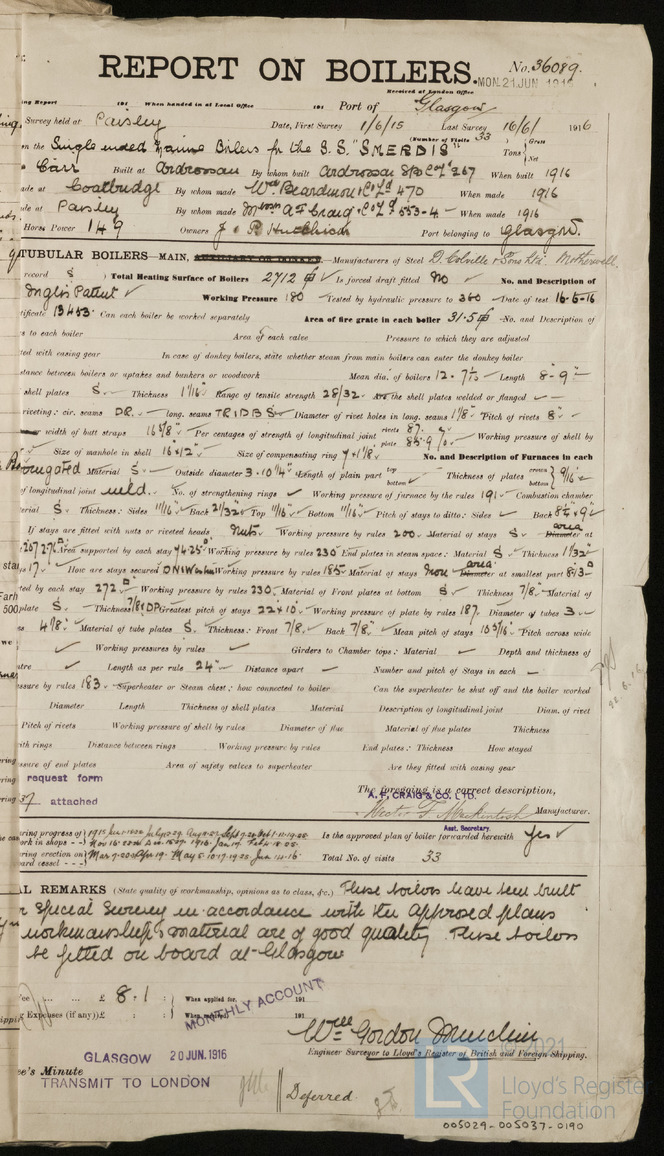 REPORT ON BOILERS.
No. 36089.
Received at London Office
MON. 21 JUN. 1916
ing Report 191 When handed in at Local Office 191 Port of Glasgow
Survey held at Paisley Date, First Survey 1/6/15 Last Survey 16/6/ 1916
(Number of Visits 33)
on the Single ended Marine Boilers for the S.S. "SMERDIS" Tons { Gross Net
Carr Built at Ardrossan By whom built Ardrossan SB Co Ld 267 When built 1916
made at Coatbridge By whom made Wm Beardmore & Co Ld 470 When made 1916
made at Paisley By whom made Messrs A F Craig & Co Ld 553-4 When made 1916
Horse Power 149 Owners J & P Hutchison Port belonging to Glasgow.
TUBULAR BOILERS—MAIN, Manufacturers of Steel D. Colville & Sons Ltd. Motherwell.
record S Total Heating Surface of Boilers 2712 Is forced draft fitted No No. and Description of
Inglis Patent Working Pressure 180 Tested by hydraulic pressure to 360 Date of test 16-5-16
tificate 13453 Can each boiler be worked separately Area of fire grate in each boiler 31.5 No. and Description of
s to each boiler Area of each valve Pressure to which they are adjusted
ted with easing gear In case of donkey boilers, state whether steam from main boilers can enter the donkey boiler
stance between boilers or uptakes and bunkers or woodwork Mean dia. of boilers 12-7 Length 8-9
shell plates S Thickness 1 1/16 Range of tensile strength 28/32 Are the shell plates welded or flanged
riveting: cir. seams DR long. seams TRIDBS Diameter of rivet holes in long. seams 1 1/8 Pitch of rivets 8
or width of butt straps 16 5/8 Per centages of strength of longitudinal joint rivets 87. plate 85.9 Working pressure of shell by
Size of manhole in shell 16"x12" Size of compensating ring 7 x 1 1/8 No. and Description of Furnaces in each
Material S Outside diameter 3-10 1/4 Length of plain part top bottom Thickness of plates crown bottom 9/16
of longitudinal joint weld. No. of strengthening rings Working pressure of furnace by the rules 191 Combustion chamber
terial S Thickness: Sides 11/16 Back 21/32 Top 11/16 Bottom 11/16 Pitch of stays to ditto: Sides Back
If stays are fitted with nuts or riveted heads Nuts Working pressure by rules 200 Material of stays S area Diameter at
Area supported by each stay 74.25 Working pressure by rules 230 End plates in steam space: Material S Thickness 1 1/32
s 17 How are stays secured DN Working pressure by rules 185 Material of stays Iron area Diameter at smallest part
ted by each stay 272 Working pressure by rules 230 Material of Front plates at bottom S Thickness 7/8 Material of
plate S Thickness Greatest pitch of stays 22x10 Working pressure of plate by rules 187 Diameter of tubes 3
es 4 1/8 Material of tube plates S. Thickness: Front 7/8 Back 7/8 Mean pitch of stays Pitch across wide
Working pressures by rules Girders to Chamber tops: Material Depth and thickness of
ntre Length as per rule 24" Distance apart Number and pitch of Stays in each
ssure by rules 183 Superheater or Steam chest; how connected to boiler Can the superheater be shut off and the boiler worked
Diameter Length Thickness of shell plates Material Description of longitudinal joint Diam. of rivet
Pitch of rivets Working pressure of shell by rules Diameter of flue Material of flue plates Thickness
with rings Distance between rings Working pressure by rules End plates: Thickness How stayed
essure of end plates Area of safety valves to superheater Are they fitted with easing gear
request form
37 attached
The foregoing is a correct description,
A. F. CRAIG & CO. LTD.
Manufacturer.
Asst. Secretary.
ring progress of
work in shops - -
ring erection on
board vessel - - -
Is the approved plan of boiler forwarded herewith Yes
Total No. of visits 33
AL REMARKS (State quality of workmanship, opinions as to class, &c.) These boilers have been built
r Special Survey in accordance with the approved plans
workmanship & material are of good quality These boilers
be fitted on board at Glasgow
ee ... ... £ 8.1 : When applied for, 191
Expenses (if any) £ : : When received, 191
MONTHLY ACCOUNT
Engineer Surveyor to Lloyd's Register of British and Foreign Shipping.
GLASGOW 20 JUN. 1916
ee's Minute
TRANSMIT TO LONDON
Deferred
© 2021
LR
Lloyd's Register
Foundation
005029-005037-0190